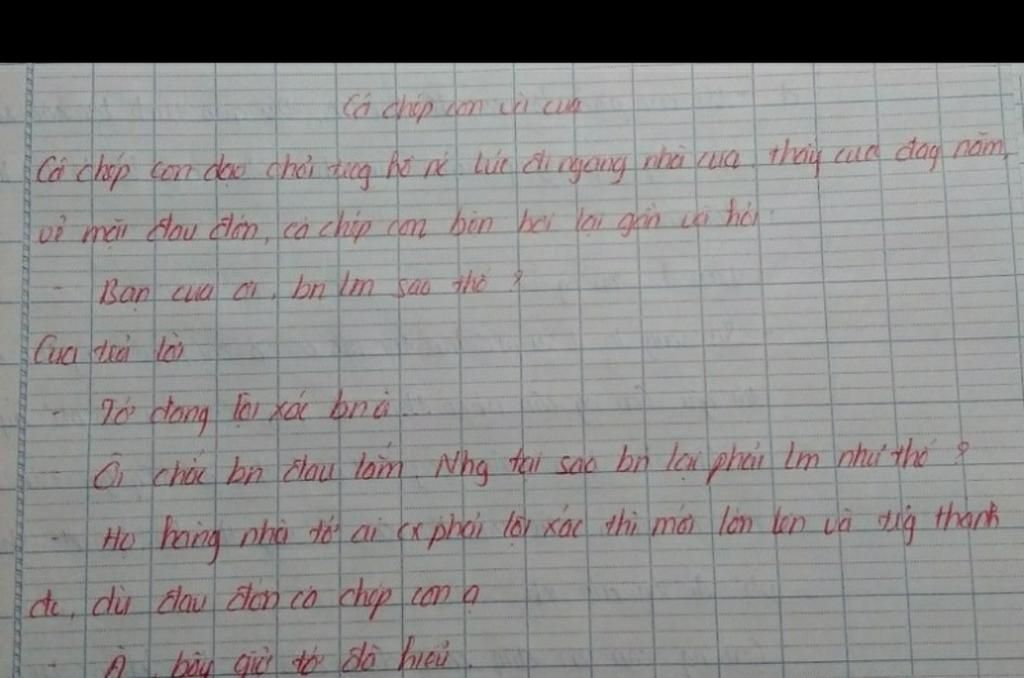 Cá chép con và cua
Cá chép con dạo chơi trog hồ nc. Lúc đi ngang nhà cua, thấy cua đag nằm,
vẻ mặt đau đớn, cá chép con bèn bơi lại gần và hỏi:
- Bạn cua ơi, bn lm sao thế?
Cua trả lời
- Tớ đang lột xác bn à.
- Ôi chắc bn đau lắm. Nhg tại sao bn lại phải lm như thế?
- Họ hàng nhà tớ ai cx phải lột xác thì mới lớn lên và trg thành
đc, dù đau đớn cá chép con ạ
- À, bây giờ tớ đã hiểu.